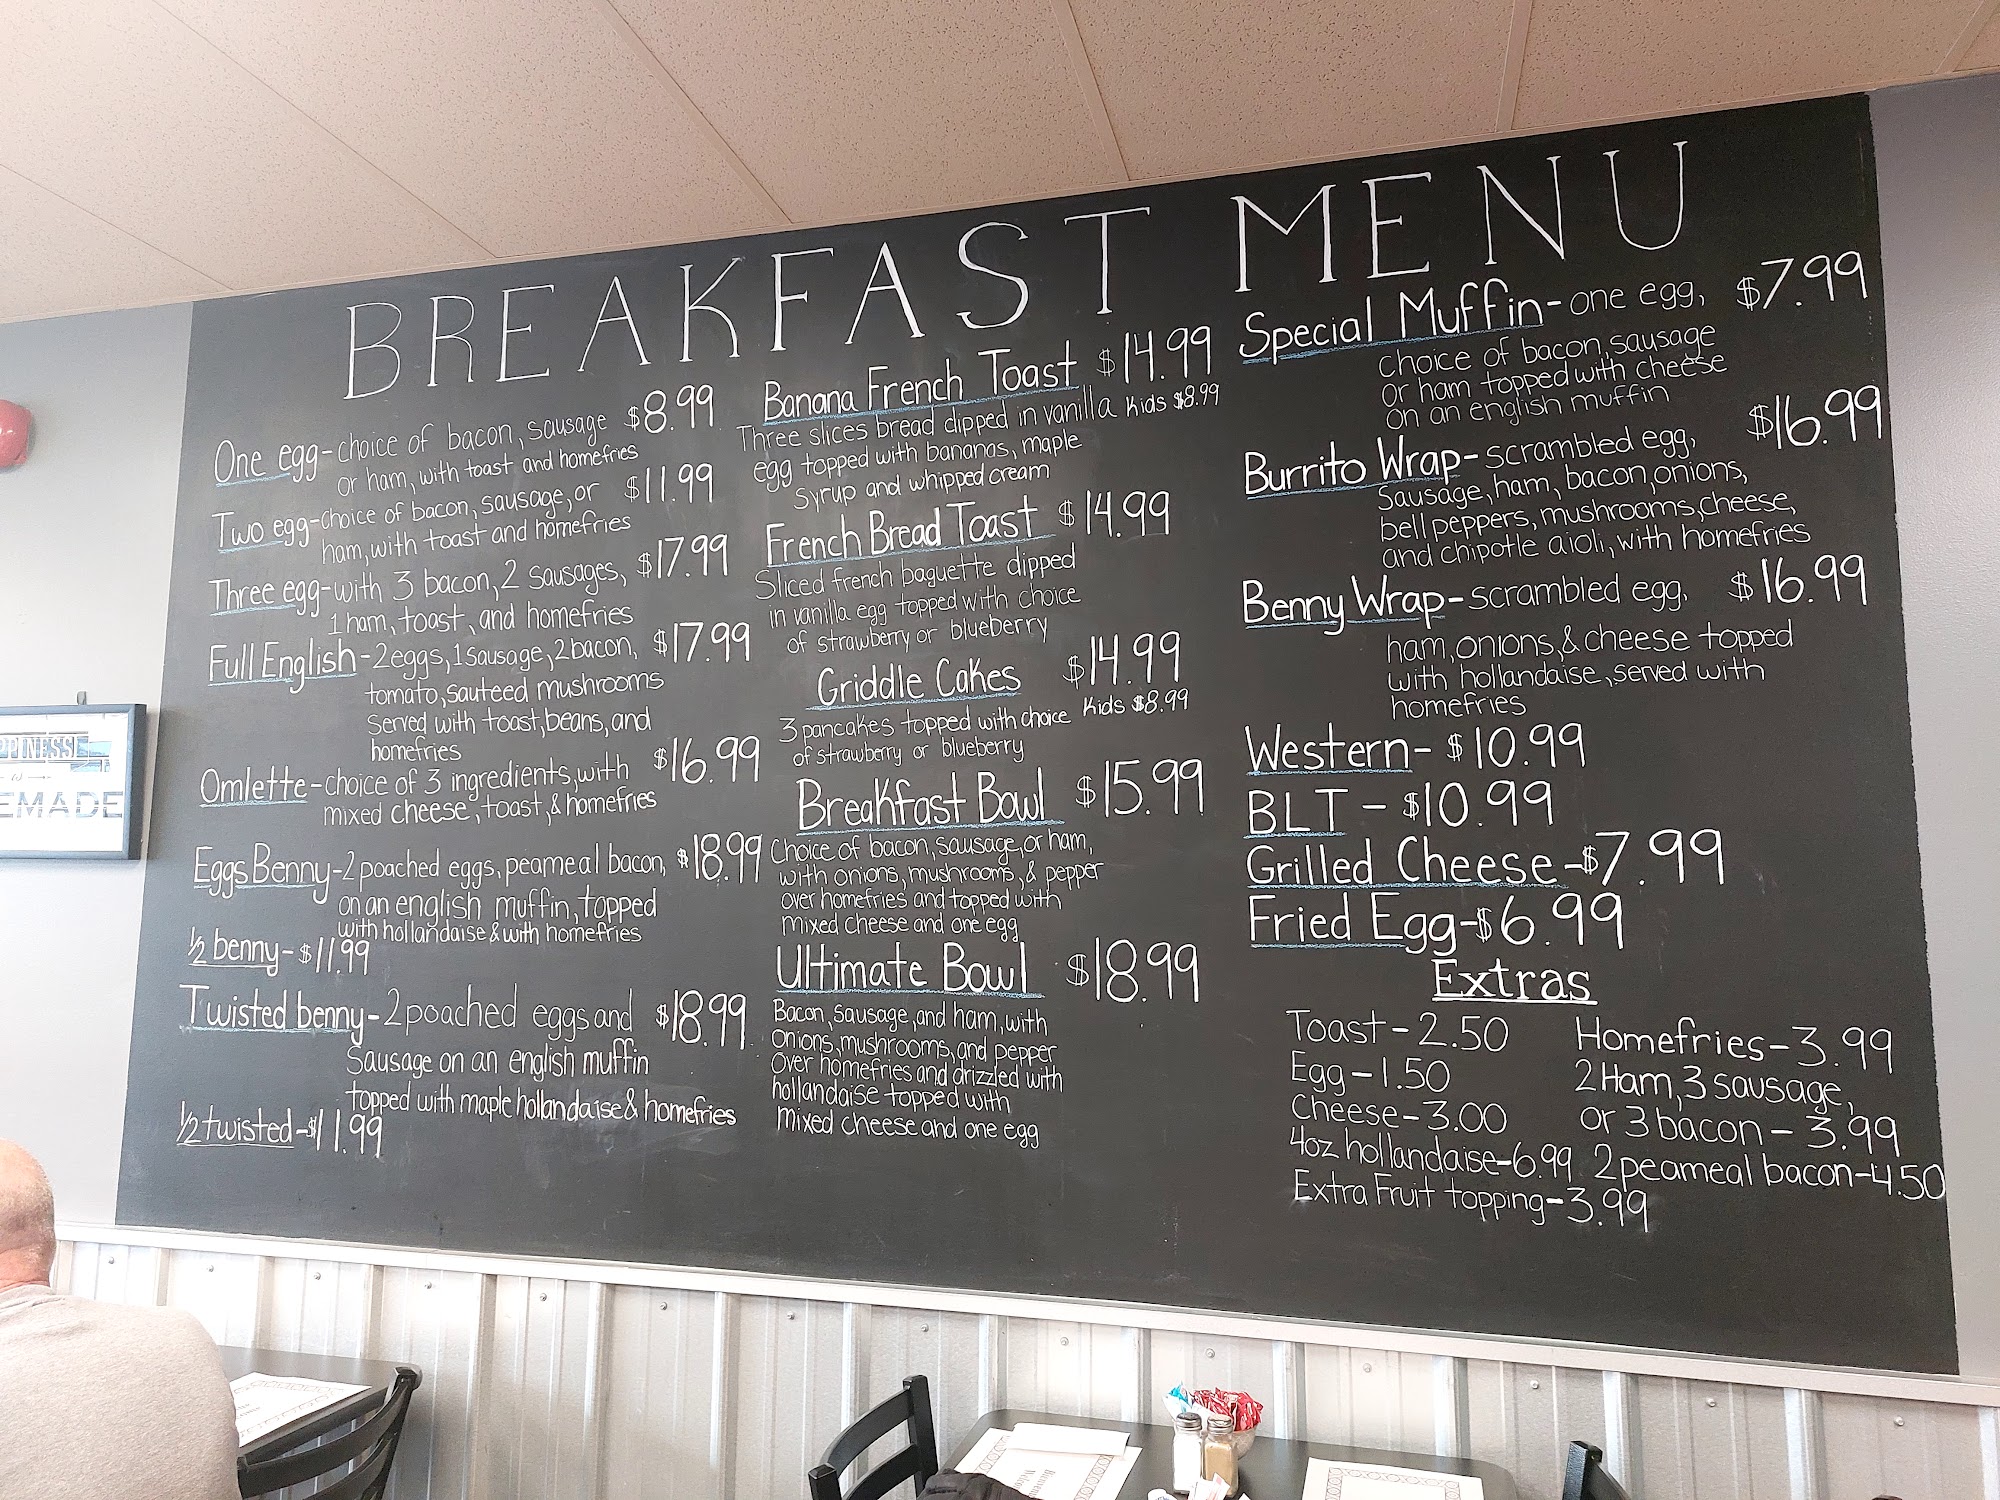 BREAKFAST MENU
One egg-choice of bacon, sausage $8.99
or ham, with toast and homefries
Two egg-choice of bacon, sausage, or $11.99
ham, with toast and homefries
Three egg-with 3 bacon, 2 sausages, $17.99
1 ham, toast, and homefries
Full English-2eggs, 1 sausage, 2 bacon, $17.99
tomato, sauteed mushrooms
Served with toast, beans, and
homefries
Omlette-choice of 3 ingredients, with $16.99
mixed cheese, toast, & homefries
Eggs Benny-2 poached eggs, peameal bacon, $18.99
on an english muffin, topped
with hollandaise & with homefries
1/2 benny-$11.99
Twisted benny-2 poached eggs and $18.99
Sausage on an english muffin
topped with maple hollandaise & homefries
1/2 twisted-$11.99
Banana French Toast $14.99
Three slices bread dipped in vanilla Kids $8.99
egg topped with bananas, maple
Syrup and whipped cream
French Bread Toast $14.99
Sliced french baguette dipped
in vanilla egg topped with choice
of strawberry or blueberry
Griddle Cakes $14.99
3 pancakes topped with choice Kids $8.99
of strawberry or blueberry
Breakfast Bowl $15.99
Choice of bacon, sausage, or ham,
with onions, mushrooms, & pepper
over homefries and topped with
mixed cheese and one egg
Ultimate Bowl $18.99
Bacon, sausage, and ham, with
onions, mushrooms, and pepper
over homefries and drizzled with
hollandaise topped with
mixed cheese and one egg
Special Muffin-one egg, $7.99
choice of bacon, sausage
or ham topped with cheese
on an english muffin
Burrito Wrap-scrambled egg, $16.99
Sausage, ham, bacon, onions,
bell peppers, mushrooms, cheese,
and chipotle aioli, with homefries
Benny Wrap-scrambled egg, $16.99
ham, onions, & cheese topped
with hollandaise, served with
homefries
Western- $10.99
BLT - $10.99
Grilled Cheese-$7.99
Fried Egg-$6.99
Extras
Toast-2.50
Egg-1.50
Cheese-3.00
4oz hollandaise-6.99
Extra Fruit topping-3.99
Homefries-3.99
2 Ham, 3 sausage,
or 3 bacon-3.99
2 peameal bacon-4.50
PPINESS
EMADE